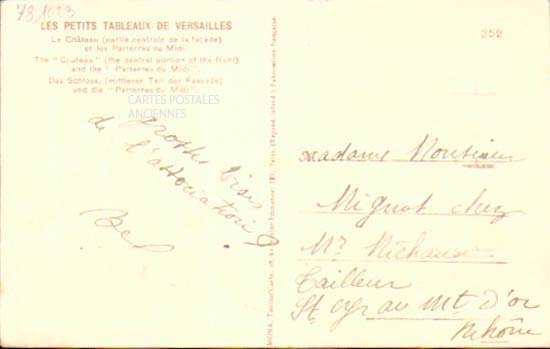 781023
LES PETITS TABLEAUX DE VERSAILLES
Le Château (partie centrale de la façade)
et les Parterres du Midi
The "Château" (the central portion of the front)
and the "Parterres du Midi".
Das Schloss, (mittlerer Teil der Fassade)
und die "Parterres du Midi".
CARTES POSTALES
ANCIENNES
grosses bises
de l'association
352
Madame Monsieur
Mignot chez
Mr Michaud
Tailleur
St Cyr au Mt d'or
Rhône